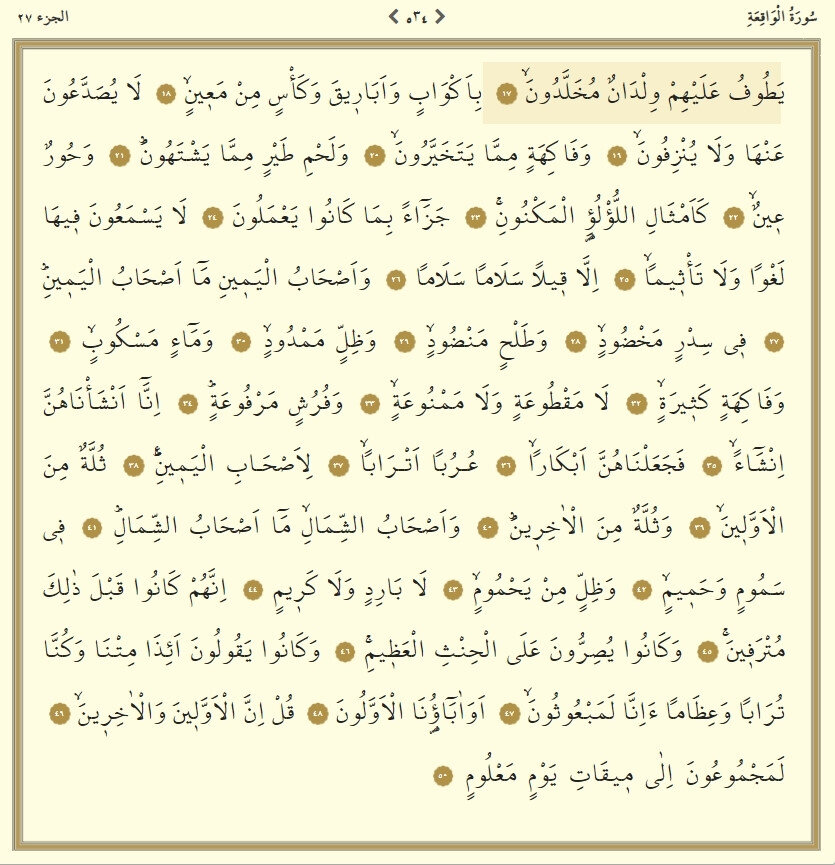 سُورَةُ الْوَاقِعَةِ ٥٣٤ الجزء ٢٧
يَطُوفُ عَلَيْهِمْ وِلْدَانٌ مُخَلَّدُونَۙ ﴿١٧﴾ بِاَكْوَابٍ وَاَبَارٖيقَ وَكَأْسٍ مِنْ مَعٖينٍۙ ﴿١٨﴾ لَا يُصَدَّعُونَ
عَنْهَا وَلَا يُنْزِفُونَۙ ﴿١٩﴾ وَفَاكِهَةٍ مِمَّا يَتَخَيَّرُونَۙ ﴿٢٠﴾ وَلَحْمِ طَيْرٍ مِمَّا يَشْتَهُونَۜ ﴿٢١﴾ وَحُورٌ
عٖينٌۙ ﴿٢٢﴾ كَاَمْثَالِ اللُّؤْلُؤِ الْمَكْنُونِۚ ﴿٢٣﴾ جَزَٓاءً بِمَا كَانُوا يَعْمَلُونَ ﴿٢٤﴾ لَا يَسْمَعُونَ فٖيهَا
لَغْوًا وَلَا تَأْثٖيمًاۙ ﴿٢٥﴾ اِلَّا قٖيلًا سَلَامًا سَلَامًا ﴿٢٦﴾ وَاَصْحَابُ الْيَمٖينِ مَٓا اَصْحَابُ الْيَمٖينِۜ
﴿٢٧﴾ فٖى سِدْرٍ مَخْضُودٍۙ ﴿٢٨﴾ وَطَلْحٍ مَنْضُودٍۙ ﴿٢٩﴾ وَظِلٍّ مَمْدُودٍۙ ﴿٣٠﴾ وَمَٓاءٍ مَسْكُوبٍۙ ﴿٣١﴾
وَفَاكِهَةٍ كَثٖيرَةٍۙ ﴿٣٢﴾ لَا مَقْطُوعَةٍ وَلَا مَمْنُوعَةٍۙ ﴿٣٣﴾ وَفُرُشٍ مَرْفُوعَةٍۜ ﴿٣٤﴾ اِنَّٓا اَنْشَأْنَاهُنَّ
اِنْشَٓاءًۙ ﴿٣٥﴾ فَجَعَلْنَاهُنَّ اَبْكَارًاۙ ﴿٣٦﴾ عُرُبًا اَتْرَابًاۙ ﴿٣٧﴾ لِاَصْحَابِ الْيَمٖينِۜ ﴿٣٨﴾ ثُلَّةٌ مِنَ
الْاَوَّلٖينَۙ ﴿٣٩﴾ وَثُلَّةٌ مِنَ الْاٰخِرٖينَۜ ﴿٤٠﴾ وَاَصْحَابُ الشِّمَالِۙ مَٓا اَصْحَابُ الشِّمَالِۜ ﴿٤١﴾ فٖى
سَمُومٍ وَحَمٖيمٍۙ ﴿٤٢﴾ وَظِلٍّ مِنْ يَحْمُومٍۙ ﴿٤٣﴾ لَا بَارِدٍ وَلَا كَرٖيمٍ ﴿٤٤﴾ اِنَّهُمْ كَانُوا قَبْلَ ذٰلِكَ
مُتْرَفٖينَۚ ﴿٤٥﴾ وَكَانُوا يُصِرُّونَ عَلَى الْحِنْثِ الْعَظٖيمِۚ ﴿٤٦﴾ وَكَانُوا يَقُولُونَ اَئِذَا مِتْنَا وَكُنَّا
تُرَابًا وَعِظَامًا ءَاِنَّا لَمَبْعُوثُونَۙ ﴿٤٧﴾ اَوَاٰبَٓاؤُ۬نَا الْاَوَّلُونَ ﴿٤٨﴾ قُلْ اِنَّ الْاَوَّلٖينَ وَالْاٰخِرٖينَۙ ﴿٤٩﴾
لَمَجْمُوعُونَ اِلٰى مٖيقَاتِ يَوْمٍ مَعْلُومٍ ﴿٥٠﴾